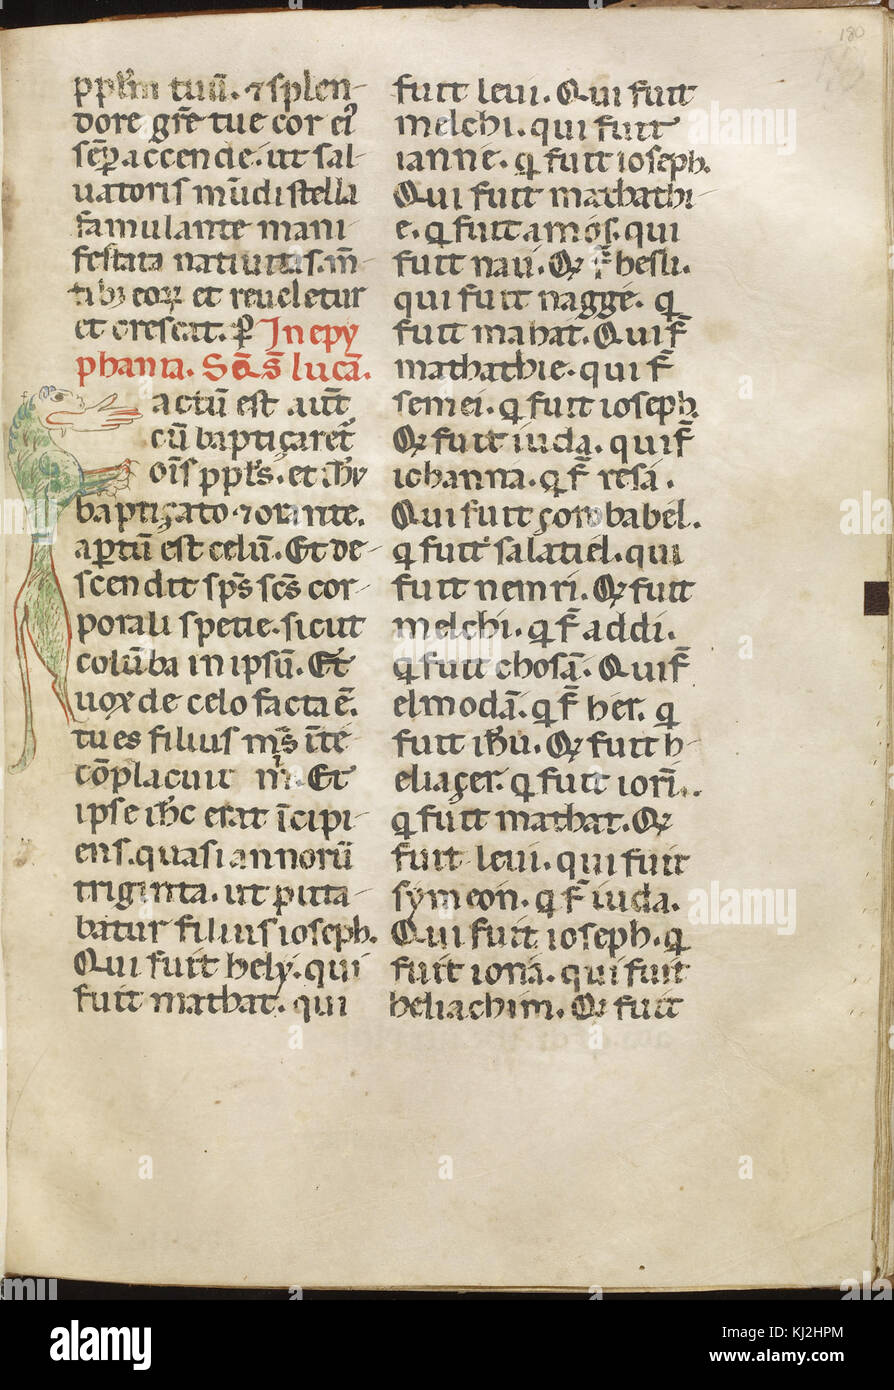 180
pplm̄ tuū. ⁊ splen-
dore gr̄e tue cor eī
sēp̲ accende. ut sal-
uatoris mūdi stella
famulante mani-
festata natiuitas. m̄-
tibꝫ eoꝝ et reueletur
et crescat. ꝑ In epy
phania. Scd̄ s̄ lucā.
actū est aut̄
cū baptiçaret̄
oīs ppls̄. et ih̄u
baptiçato ⁊ orante.
aꝑtū est celū. Et de-
scendit sp̄s sc̄s cor-
porali spetie. sicut
colūba in ipsū. Et
uox de celo facta ē.
tu es filius m̄s ī te
cōplacuit m̄. Et
ipse ih̄c erat īcipi-
ens. quasi annorū
triginta. ut putta-
batur filius ioseph.
Qui fuit hely. qui
fuit mathat. qui
fuit leui. Qui fuit
melchi. qui fuit
ianne. q̄ fuit ioseph.
Qui fuit mathathi-
e. q̄ fuit amos. qui
fuit naū. Qꝫ f̄ hesli.
qui fuit nagge. q̄
fuit mahat. Qui f̄
mathathie. qui f̄
semei. q̄ fuit ioseph.
Qꝫ fuit iuda. qui f̄
iohanna. q̄ f̄ resa.
Qui fuit çorobabel.
q̄ fuit salatiel. qui
fuit nemri. Qꝫ fuit
melchi. q̄ f̄ addi.
q̄ fuit chosā. Qui f̄
elmodā. q̄ f̄ her. q̄
fuit ih̄u. Qꝫ fuit h-
eliaçer. q̄ fuit iorī.
q̄ fuit mathat. Qꝫ
fuit leui. qui fuit
symeon. q̄ f̄ iuda.
Qui fuit ioseph. q̄
fuit iona. qui fuit
heliachim. Qꝫ fuit
alamy
Image ID: KJ2HPM
www.alamy.com